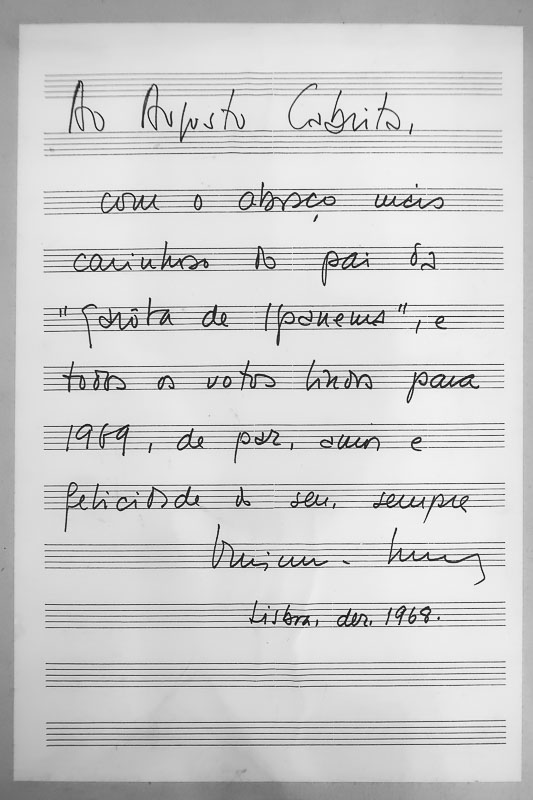 Ao Augusto Cabrita,
com o abraço mais
carinhoso do pai da
"Garôta de Ipanema", e
todos os votos lindos para
1969, de paz, amor e
felicidade do seu, sempre
Vinicius de Moraes
Lisboa, dez. 1968.